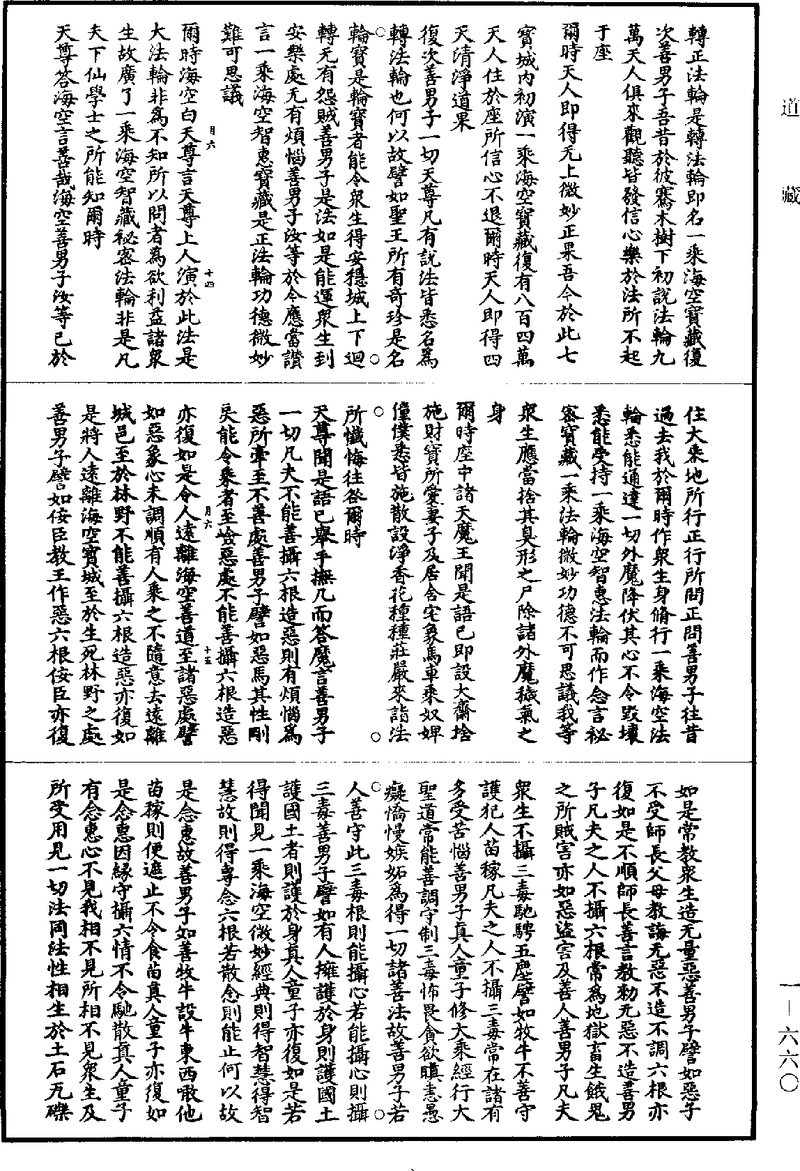 道藏
轉正法輪是轉法輪即名一乘海空寶藏復
次善男子吾昔於彼騫木樹下初說法輪九
萬天人俱來觀聽皆發信心樂於法所不起
于座
爾時天人即得无上微妙正果吾今於此七
寶城內初演一乘海空寶藏復有八百四萬
天人住於座所信心不退爾時天人即得四
天清淨道果
復次善男子一切天尊凡有說法皆悉名為
轉法輪也何以故譬如聖王所有奇珍是名
輪寶是輪寶者能令眾生得安穩城上下迴
轉无有怨賊善男子是法如是能運眾生到
安樂處无有煩惱善男子汝等於今應當讚
言一乘海空智惠寶藏是正法輪功德微妙
難可思議
月六
爾時海空白天尊言天尊上人演於此法是
十四
大法輪非為不知所以問者為欲利益諸眾
生故廣了一乘海空智藏秘密法輪非是凡
夫下仙學士之所能知爾時
天尊答海空言善哉海空善男子汝等已於
住大乘地所行正行所問正問善男子往昔
過去我於爾時作眾生身脩行一乘海空法
輪悉能通達一切外魔降伏其心不令毀壞
悉能受持一乘海空智惠法輪而作念言秘
密寶藏一乘法輪微妙功德不可思議我等
眾生應當捨其臭形之尸除諸外魔穢氣之
身
爾時座中諸天魔王聞是語已即設大齋捨
施財寶所愛妻子及居舍宅象馬車乘奴婢
僮僕悉皆施散設淨香花種種莊嚴來詣法
所懺悔往咎爾時
天尊聞是語已舉手撫几而答魔言善男子
一切凡夫不能善攝六根造惡則有煩惱為
惡所牽至不善處善男子譬如惡馬其性剛
戾能令乘者至嶮惡處不能善攝六根造惡
月六
亦復如是令人遠離海空善道至諸惡處譬
十五
如惡象心未調順有人乘之不隨意去遠離
城邑至於林野不能善攝六根造惡亦復如
是將人遠離海空寶城至於生死林野之處
善男子譬如佞臣教王作惡六根佞臣亦復
如是常教眾生造无量惡善男子譬如惡子
不受師長父母教誨无惡不造不調六根亦
復如是不順師長善言教勑无惡不造善男
子凡夫之人不攝六根常為地獄畜生餓鬼
之所賊害亦如惡盜害及善人善男子凡夫
眾生不攝三毒馳騁五塵譬如牧牛不善守
護犯人苗稼凡夫之人不攝三毒常在諸有
多受苦惱善男子真人童子修大乘經行大
聖道常能善調守制三毒怖畏貪欲瞋恚愚
癡憍慢嫉妬為得一切諸善法故善男子若
人善守此三毒根則能攝心若能攝心則攝
三毒善男子譬如有人擁護於身則護國土
護國土者則護於身真人童子亦復如是若
得聞見一乘海空微妙經典則得智慧得智
慧故則得專念六根若散念則能止何以故
是念惠故善男子如善牧牛設牛東西噉他
苗稼則便遮止不令食苗真人童子亦復如
是念惠因緣守攝六情不令馳散真人童子
有念惠心不見我相不見所相不見眾生及
所受用見一切法同法性相生於土石瓦礫
一—六六〇